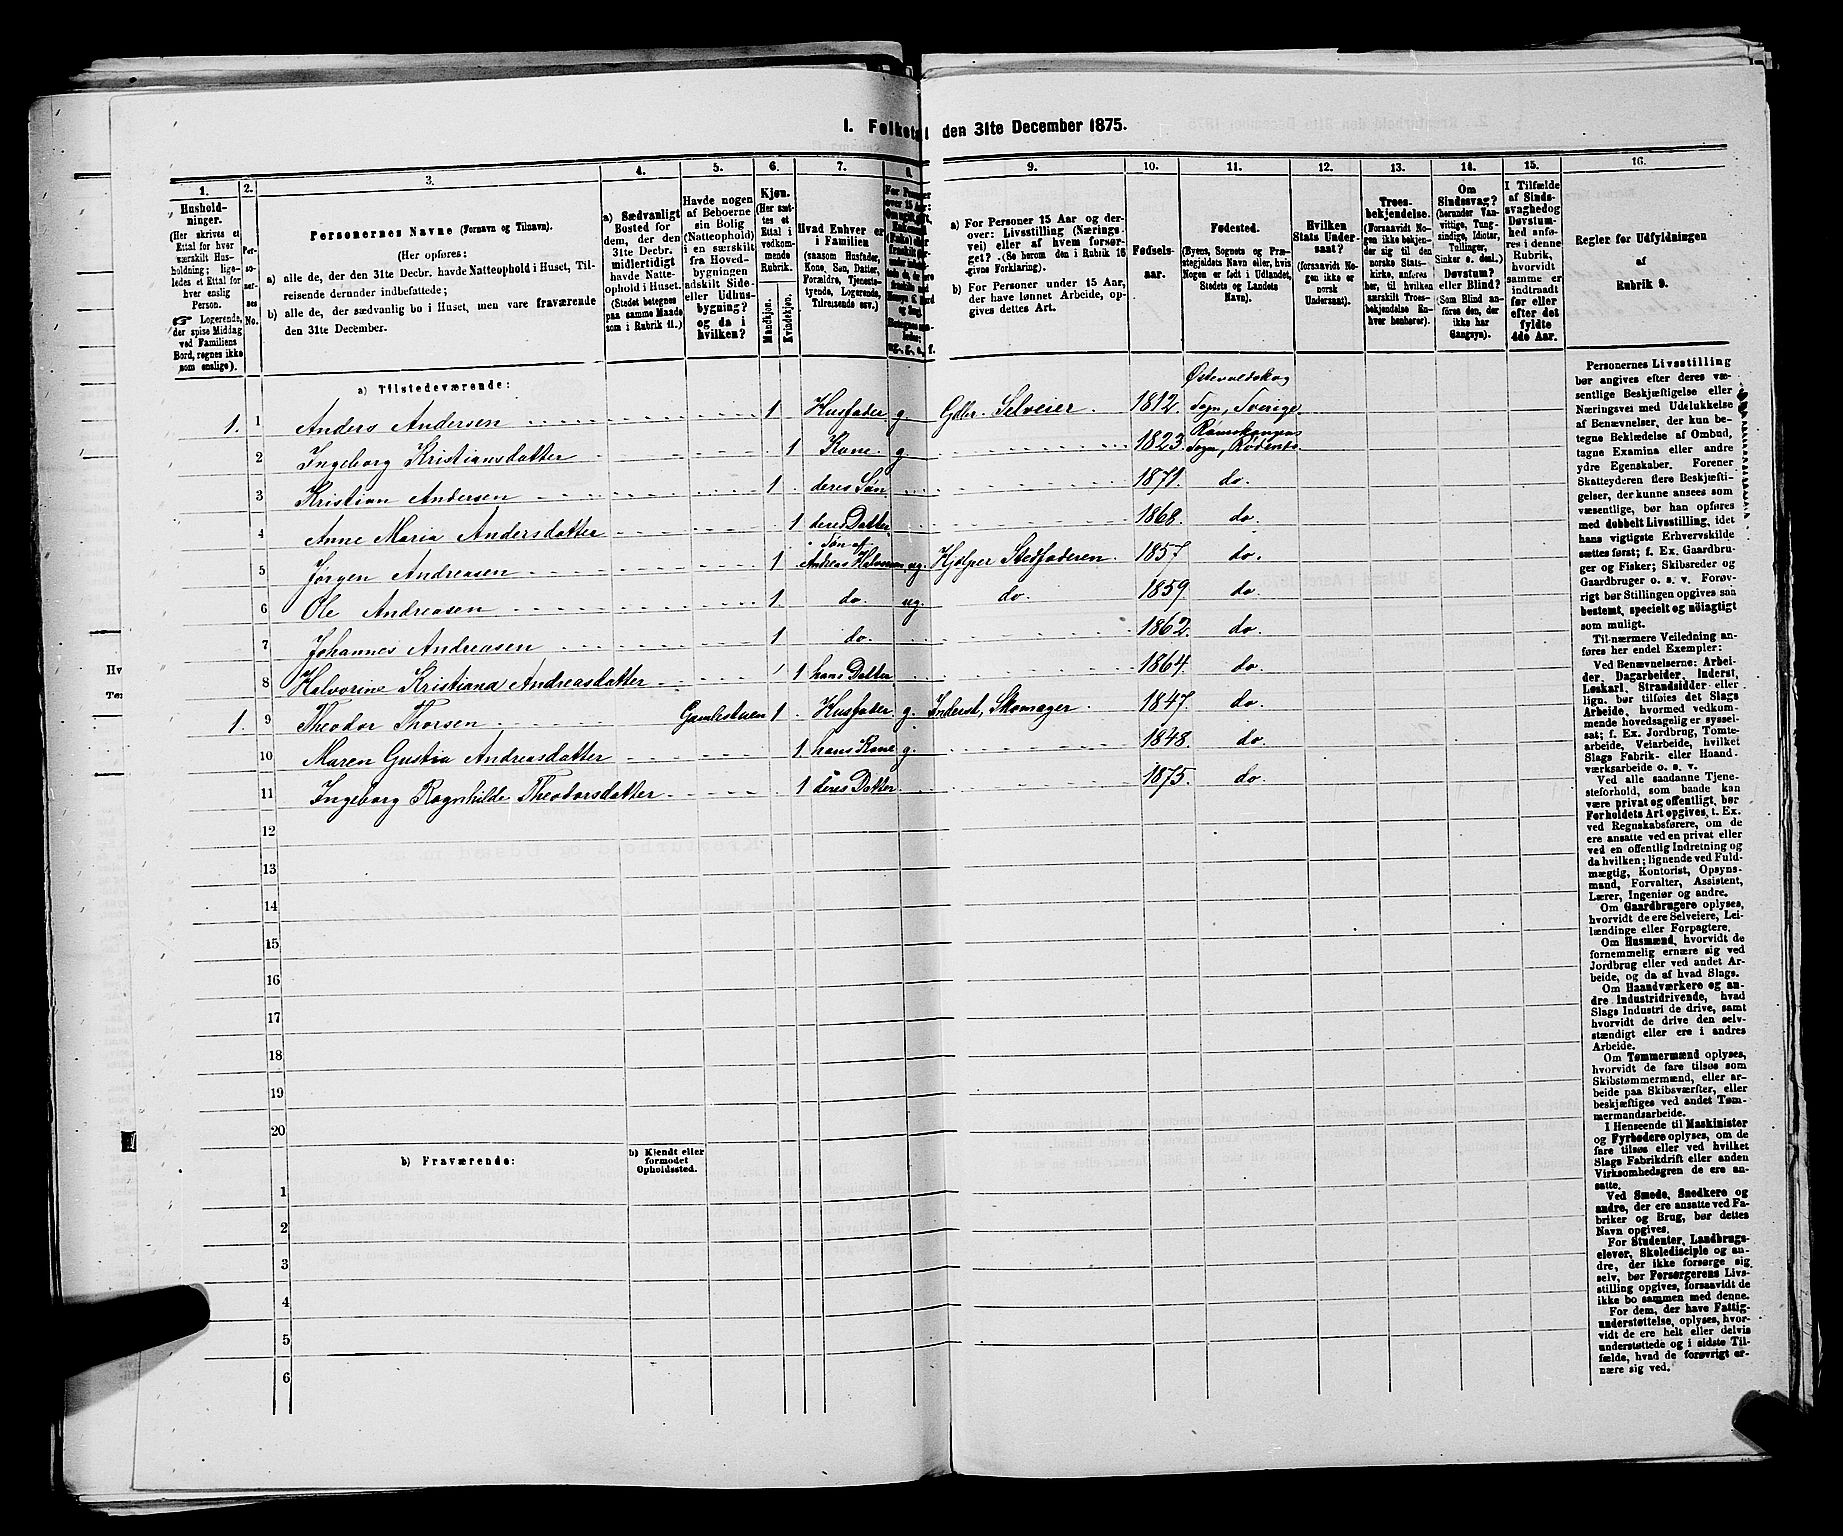 I. Folketal den 31te December 1875.
1. 2. 3. 4. 5. 6. 7. 8. 9. 10. 11. 12. 13. 14. 15. 16.
Husholdninger.
(Her skrives et Ettal for hver særskilt Husholdning; ligeledes et Ettal for hver enslig Person.
☞ Logerende, der spise Middag ved Familiens Bord, regnes ikke som enslige).
Personernes No.
Personernes Navne (Fornavn og Tilnavn).
(Her opføres:
a) alle de, der den 31te Decbr. havde Natteophold i Huset, Tilreisende derunder indbefattede;
b) alle de, der sædvanlig bo i Huset, men vare fraværende den 31te December.
a) Sædvanligt Bosted for dem, der den 31te Decbr. midlertidigt havde Natteophold i Huset. (Stedet betegnes paa samme Maade som i Rubrik 11.)
Havde nogen af Beboerne sin Bolig (Natteophold) i en særskilt fra Hovedbygningen adskilt Side- eller Udhusbygning? og da i hvilken?
Kjøn. (Her sættes et Ettal i vedkommende Rubrik.
Mandkjøn. Kvindekjøn.
Hvad Enhver er i Familien (saasom Husfader, Kone, Søn, Datter, Forældre, Tjenestetyende, Logerende, Tilreisende osv.)
a) For Personer 15 Aar og derover: Livsstilling (Næringsvei) eller af hvem forsørget? (Se herom den i Rubrik 16 givne Forklaring).
b) For Personer under 15 Aar, der have lønnet Arbeide, opgives dettes Art.
Fødselsaar.
Fødested. (Byens, Sognets og Præstegjeldets Navn eller, hvis Nogen er født i Udlandet, Stedets og Landets Navn).
Hvilken Stats Undersaat? (forsaavidt Nogen ikke er norsk Undersaat).
Troesbekjendelse. (Forsaavidt Nogen ikke bekjender sig til den norske Statskirke, anføres her, til hvilken særskilt Troesbekjendelse Enhver henhører).
Om Sindssvag? (herunder Vanvittige, Tungsindige, Idioter, Tullinger, Sinker o. desl.) Døvstum? eller Blind? (Som Blind anføres den, der ikke har Gangsyn).
I Tilfælde af Sindssvaghed og Døvstumhed anføres i denne Rubrik, hvorvidt samme er indtraadt før eller efter det fyldte 4de Aar.
Regler for Udfyldningen af Rubrik 9.
a) Tilstedeværende:
1. 1 Anders Andersen 1 Husfader g Gdbr. Selveier 1812. Østervoldskog Sogn, Sverige
2 Ingeborg Kristiansdatter 1 Kone g 1823. Rømskongens Sogn, Rødenæs
3 Kristian Andersen 1 deres Søn 1871. do.
4 Anne Maria Andersdatter 1 deres Datter 1868. do.
5 Jørgen Andreasen 1 Søn af Andreas Halvorsen ug. Hjælper Stedfaderen 1857. do.
6 Ole Andreasen 1 do. ug. do. 1859 do.
7 Johannes Andreasen 1 do. 1862. do.
8 Halvorine Kristiana Andreasdatter 1 hans Datter 1864. do.
1. 9 Theodor Thorsen Gamlestuen 1 Husfader g. Inderst, Skomager 1847. do.
10 Maren Gustva Andreasdatter 1. hans Kone g. 1848. do.
11 Ingeborg Ragnhilde Theodorsdatter 1 deres Datter 1875. do
12
13
14
15
16
17
18
19
20
b) Fraværende:
b) Kjendt eller formodet Opholdssted.
1
2
3
4
5
6
Personernes Livsstilling
bør angives efter deres væ-
sentlige Beskjæftigelse eller
Næringsvei med Udelukkelse
af Benævnelser, der kun be-
tegne Beklædelse af Ombud,
tagne Examina eller andre
ydre Egenskaber. Forener
Skatteyderen flere Beskjæfti-
gelser, der kunne ansees som
væsentlige, bør han opføres
med dobbelt Livsstilling, idet
hans vigtigste Erhvervskilde
sættes først; f. Ex. Gaardbru-
ger og Fisker; Skibsreder og
Gaardbruger o. s. v. Forøv-
rigt bør Stillingen opgives saa
bestemt, specielt og nøiagtigt
som muligt.
Til nærmere Veiledning an-
føres her endel Exempler:
Ved Benævnelserne: Arbei-
der, Dagarbeider, Inderst,
Løskarl, Strandsidder eller
lign. bør tilføies det Slags
Arbeide, hvormed vedkom-
mende hovedsagelig er syssel-
sat; f. Ex. Jordbrug, Tomte-
arbeide, Veiarbeide, hvilket
Slags Fabrik- eller Haand-
værksarbeide o. s. v.
Ved alle saadanne Tjene-
steforhold, som baade kan
være privat og offentligt, bør
Forholdets Art opgives, t. Ex.
ved Regnskabsførere, om de
ere ansatte ved en privat eller
ved en offentlig Indretning og
da hvilken; lignende ved Fuld-
mægtig, Kontorist, Opsyns-
mand, Forvalter, Assistent,
Lærer, Ingeniør og andre.
Om Gaardbrugere oplyses,
hvorvidt de ere Selveiere, Lei-
lændinge eller Forpagtere.
Om Husmænd, hvorvidt de
fornemmelig ernære sig ved
Jordbrug eller ved andet Ar-
beide, og da af hvad Slags.
Om Haandværkere og an-
dre Industridrivende, hvad
Slags Industri de drive, samt
hvorvidt de drive den selv-
stændigt eller ere i andres
Arbeide.
Om Tømmermænd oplyses,
hvorvidt de fare tilsøs som
Skibstømmermænd, eller ar-
beide paa Skibsværfter, eller
beskjæftiges ved andet Tøm-
mermandsarbeide.
I Henseende til Maskinister
og Fyrbødere oplyses, om de
fare tilsøs eller ved hvilket
Slags Fabrikdrift eller anden
Virksomhedsgren de ere an-
satte.
Ved Smede, Snedkere og
andre, der ere ansatte ved Fa-
briker og Brug, bør dettes
Navn opgives.
For Studenter, Landbrugs-
elever, Skoledisciple og an-
dre, der ikke forsørge sig
selv, bør Forsørgerens Livs-
stilling opgives, forsaavidt de
ikke bo sammen med denne.
For dem, der have Fattig-
understøttelse, oplyses, hvor-
vidt de ere helt eller delvis
understøttede og i sidste Til-
fælde, hvad de forøvrigt er-
nære sig ved.